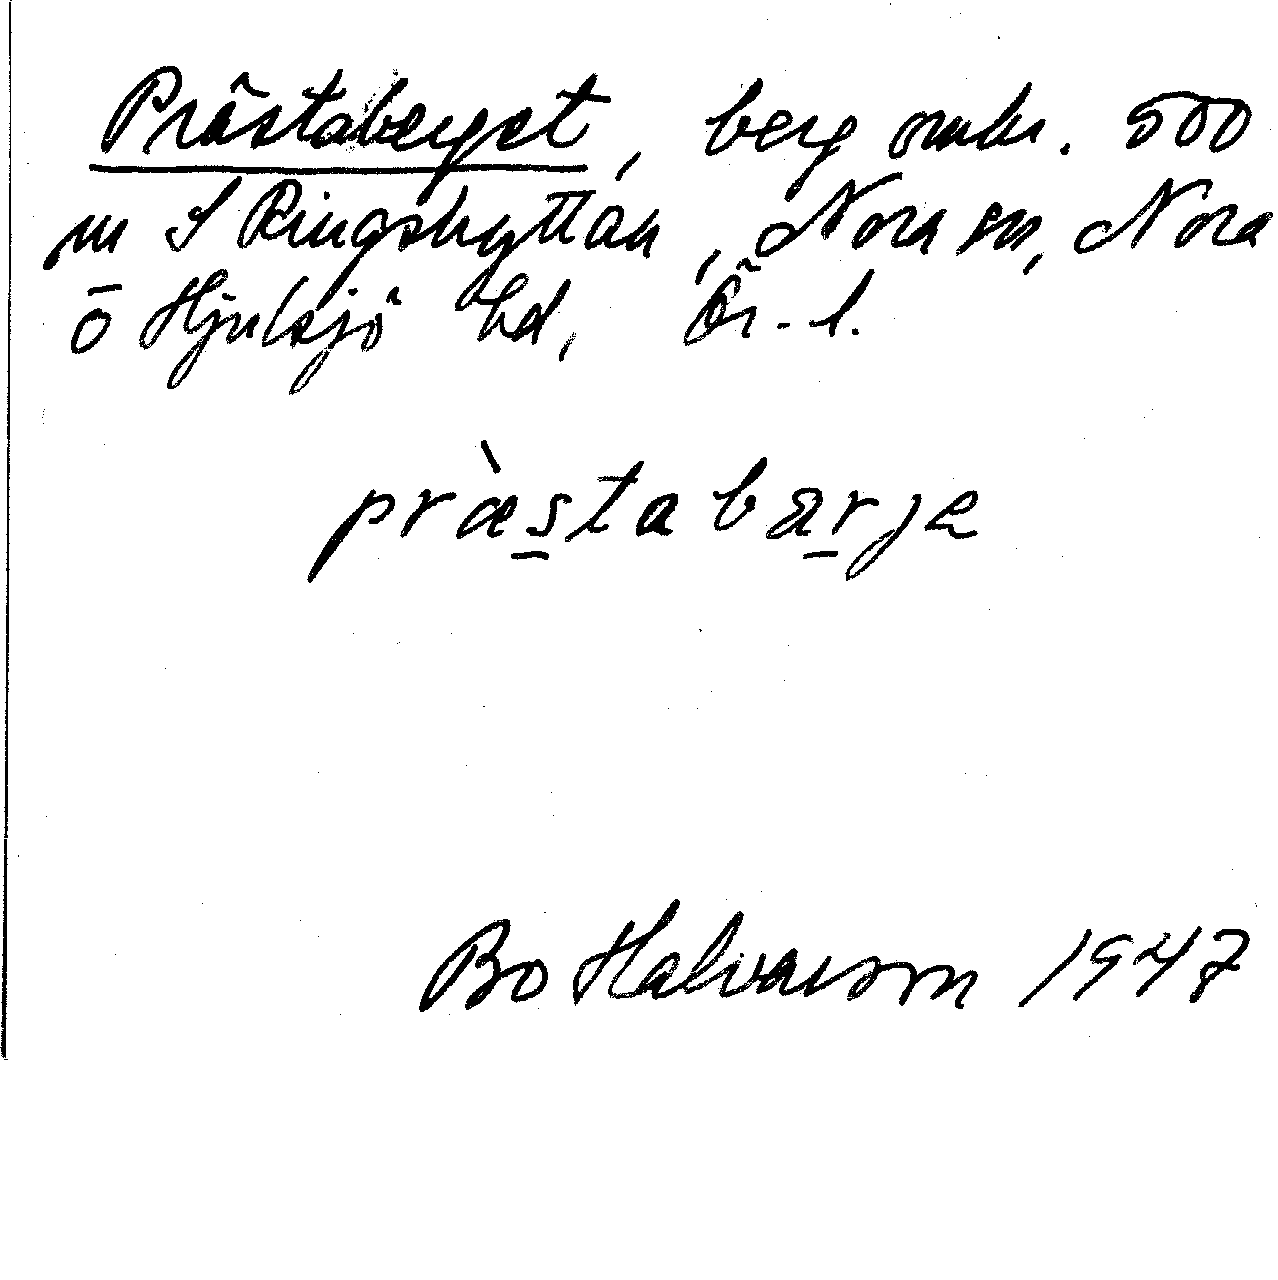 Prästaberget, berg omkr. 500
m S Ringshyttan, Nora sn, Nora
o Hjulsjö hd, Ör. l.
prɑ̀̀stabærje
Bo Halvarson 1947